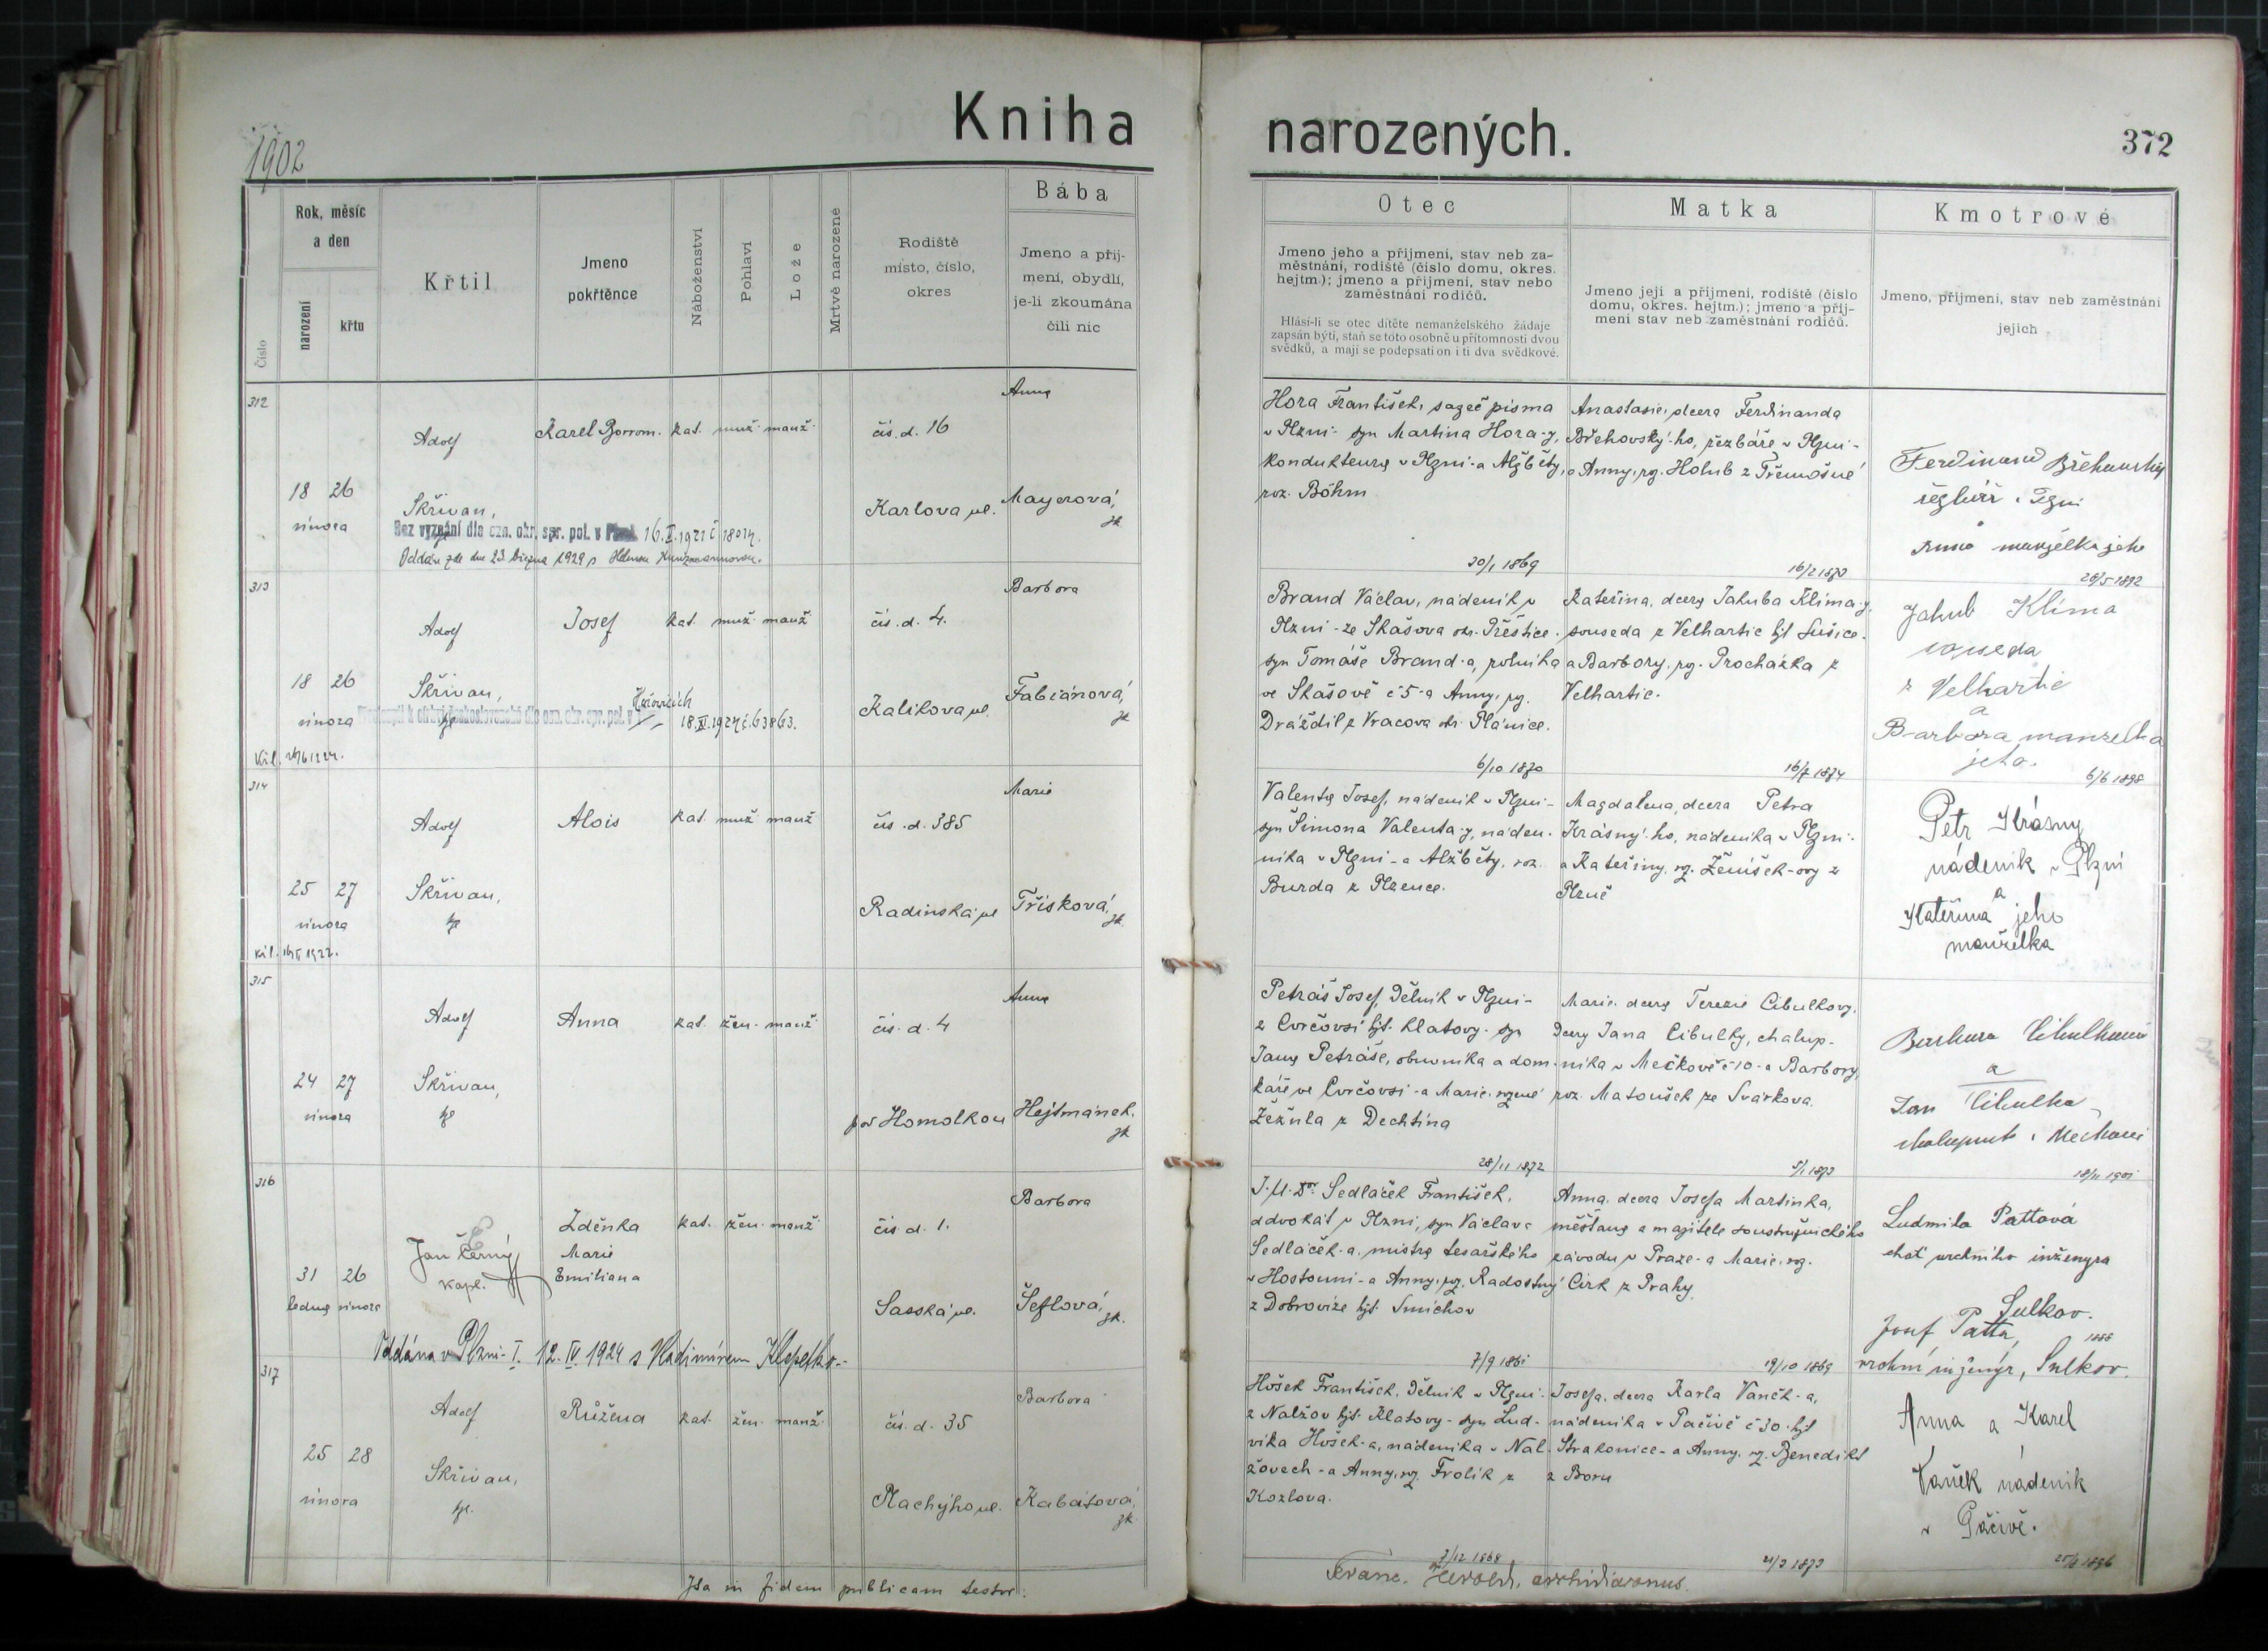 Kniha narozených.
372
1902
Číslo
Rok, měsíc
a den
narození
křtu
Křtil
Jmeno
pokřtěnce
Náboženství
Pohlaví
Lože
Mrtvě narozené
Rodiště
místo, číslo,
okres
Bába
Jmeno a přij-
mení, obydlí,
je-li zkoumána
čili nic
Otec
Jmeno jeho a přijmení, stav neb za-
městnání, rodiště (číslo domu, okres.
hejtm.); jmeno a přijmení, stav nebo
zaměstnání rodičů.
Hlásí-li se otec dítěte nemanželského žádaje
zapsán býti, staň se toto osobně u přítomnosti dvou
svědků, a mají se podepsati on i ti dva svědkové.
Matka
Jmeno její a přijmení, rodiště (číslo
domu, okres. hejtm.); jmeno a přij-
mení stav neb zaměstnání rodičů.
Kmotrové
Jmeno, přijmení, stav neb zaměstnání
jejich
312
18 26
února
Adolf
Skřivan,
Karel Borrom.
kat. muž. manž.
čís. d. 16
Karlova ul.
Anna
Mayerová,
zk.
Bez vyznání dle ozn. okr. spr. pol. v Plzni 16.I.1921 č 18014.
Oddán zde dne 23. března 1929 s Helenou
Hora František, sazeč písma
v Plzni - syn Martina Hora-y,
kondukteura v Plzni - a Alžběty,
roz. Böhm
30/1 1869
Anastasie, dcera Ferdinanda
Břehovský-ho, řezbáře v Plzni -
a Anny, rz. Holub z Třemošné
16/2 1870
Ferdinand Břehovský
řezbář v Plzni
a
Anna manželka jeho
28/5 1892
313
18 26
února
Adolf
Skřivan,
Josef
kat. muž. manž.
čís. d. 4.
Kalikova ul.
Barbora
Fabiánová,
zk
18.XI.1924 č. 63863.
Brand Václav, nádeník v
Plzni - ze Skašova okr. Přeštice.
syn Tomáše Brand-a, rolníka
ve Skašově č 5 - a Anny, rz.
Dráždil z Vracova okr. Plánice.
6/10 1870
Kateřina, dcera Jakuba Klíma-y,
souseda z Velhartic hjt Sušice.
a Barbory, rz. Procházka z
Velhartic.
16/7 1874
Jakub Klíma
souseda
z Velhartic
a
Barbora manzelka
jeho.
6/6 1898
314
25 27
února
Adolf
Skřivan,
kp
Alois
kat. muž. manž
čís. d. 385
Radinská ul
Marie
Třísková,
zk.
Valenta Josef, nádeník v Plzni -
syn Šimona Valenta-y, náden-
níka v Plzni - a Alžběty, roz.
Burda z Plzence.
Magdalena, dcera Petra
Krásný-ho, nádeníka v Plzni -
a Kateřiny, rz. Ženíšek-ovy z
Plzně
Petr Krásny
nádenik v Plzni
a
Kateřina jeho
manželka
315
24 27
února
Adolf
Skřivan,
kp
Anna
kat. žen. manž.
čís. d. 4
pod Homolkou
Anna
Hejtmánek.
zk
Petráš Josef, dělník v Plzni -
z Cvrčovsi hjt. Klatovy - syn
Jana Petráše, obuvníka a dom-
káře ve Cvrčovsi - a Marie, rozené
Žežula z Dechtína
28/11 1872
Marie, dcera Terezie Cibulkovy,
dcery Jana Cibulky, chalup-
níka v Mečkově č 10 - a Barbory,
roz. Matoušek ze Svárkova.
5/1 1873
Barbora Cibulková
a
Jan Cibulka
18/11 1901
316
31 26
ledna února
Jan Černý
kapl.
Zděnka
Marie
Emiliana
kat. žen. manž.
čís. d. 1.
Saská ul.
Barbora
Šeflová,
zk.
Oddána v Plzni-I. 12. IV 1924 s Vladimírem Klepetko.-
J. U. Dr. Sedláček František,
advokát v Plzni, syn Václava
Sedláček-a, mistra tesařského
v Hostouni - a Anny, rz. Radostný
z Dobrovíze hjt. Smíchov
7/9 1861
Anna, dcera Josefa Martinka,
měšťana a majitele soustružnického
závodu v Praze - a Marie, rz.
Cirk z Prahy.
19/10 1869
Ludmila Pattová
choť vrchního inženyra
Sulkov.
Josef Patta,
1888
vrchní inženýr, Sulkov.
317
25 28
února
Adolf
Skřivan,
kp.
Růžena
kat. žen. manž.
čís. d. 35
Plachýho ul.
Barbora
Kabátová,
zk
Hošek František, dělník v Plzni.
z Nalžov hjt. Klatovy - syn Lud-
víka Hošek-a, nádeníka v Nal-
žovech - a Anny, rz. Frolík z
Kozlova.
3/12 1868
Josefa, dcera Karla Vaněk-a,
nádeníka v Pačivě č 30. hjt
Strakonice - a Anny, rz. Benedikt
z Boru
21/3 1873
Anna a Karel
Vaněk nádenik
v Pačivě.
25/6 1896
Ita in fidem publicam testor:
Franc. Herold, archidiaconus.